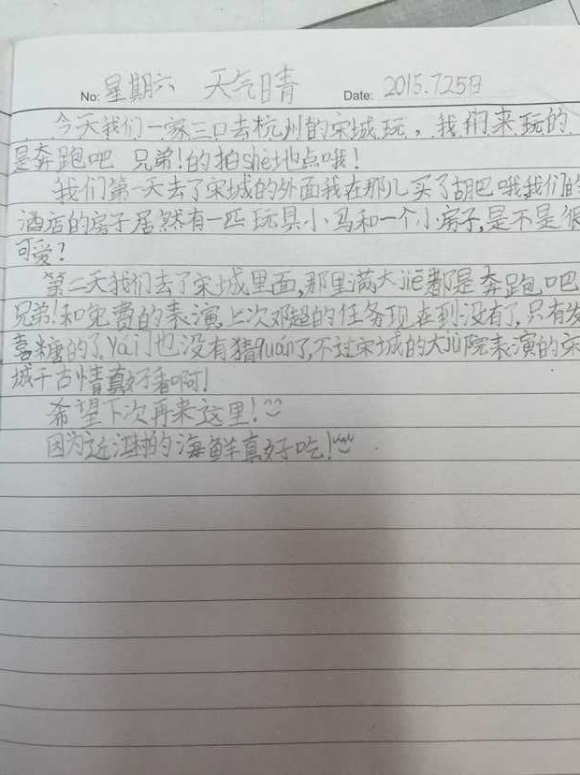 No: 星期六 天气晴 Date: 2015.7.25日
今天我们一家三口去杭州的宋城玩，我们来玩的
是奔跑吧 兄弟!的拍shè地点哦!
我们第一天去了宋城的外面我在那儿买了胡巴哦我们的
酒店的房子居然有一匹玩具小马和一个小房子,是不是很
可爱?
第二天我们去了宋城里面,那里满大jiē都是奔跑吧
兄弟!和免费的表演,上次邓超的任务现在到没有了,只有发
喜糖的了,Yái门也没有猜quán了,不过宋城的大jù院表演的宋
城千古情真好看啊!
希望下次再来这里!
因为近江村的海鲜真好吃!